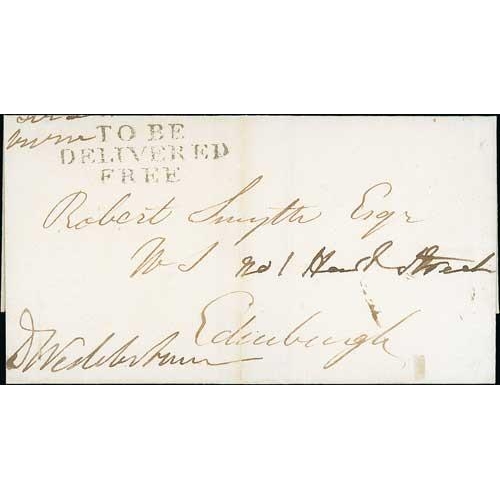 TO BE
DELIVERED
FREE
Robert Smyth Esqr
W S No 1 Hart Street
Edinburgh
D Wedderburn